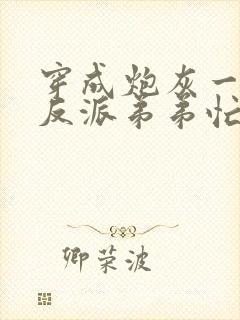 穿成炮灰一
反派弟弟忙
卿荣波